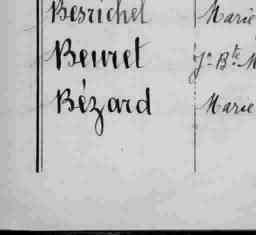 Besrichet Marie
Beuret Jn Bte M
Bézard Marie